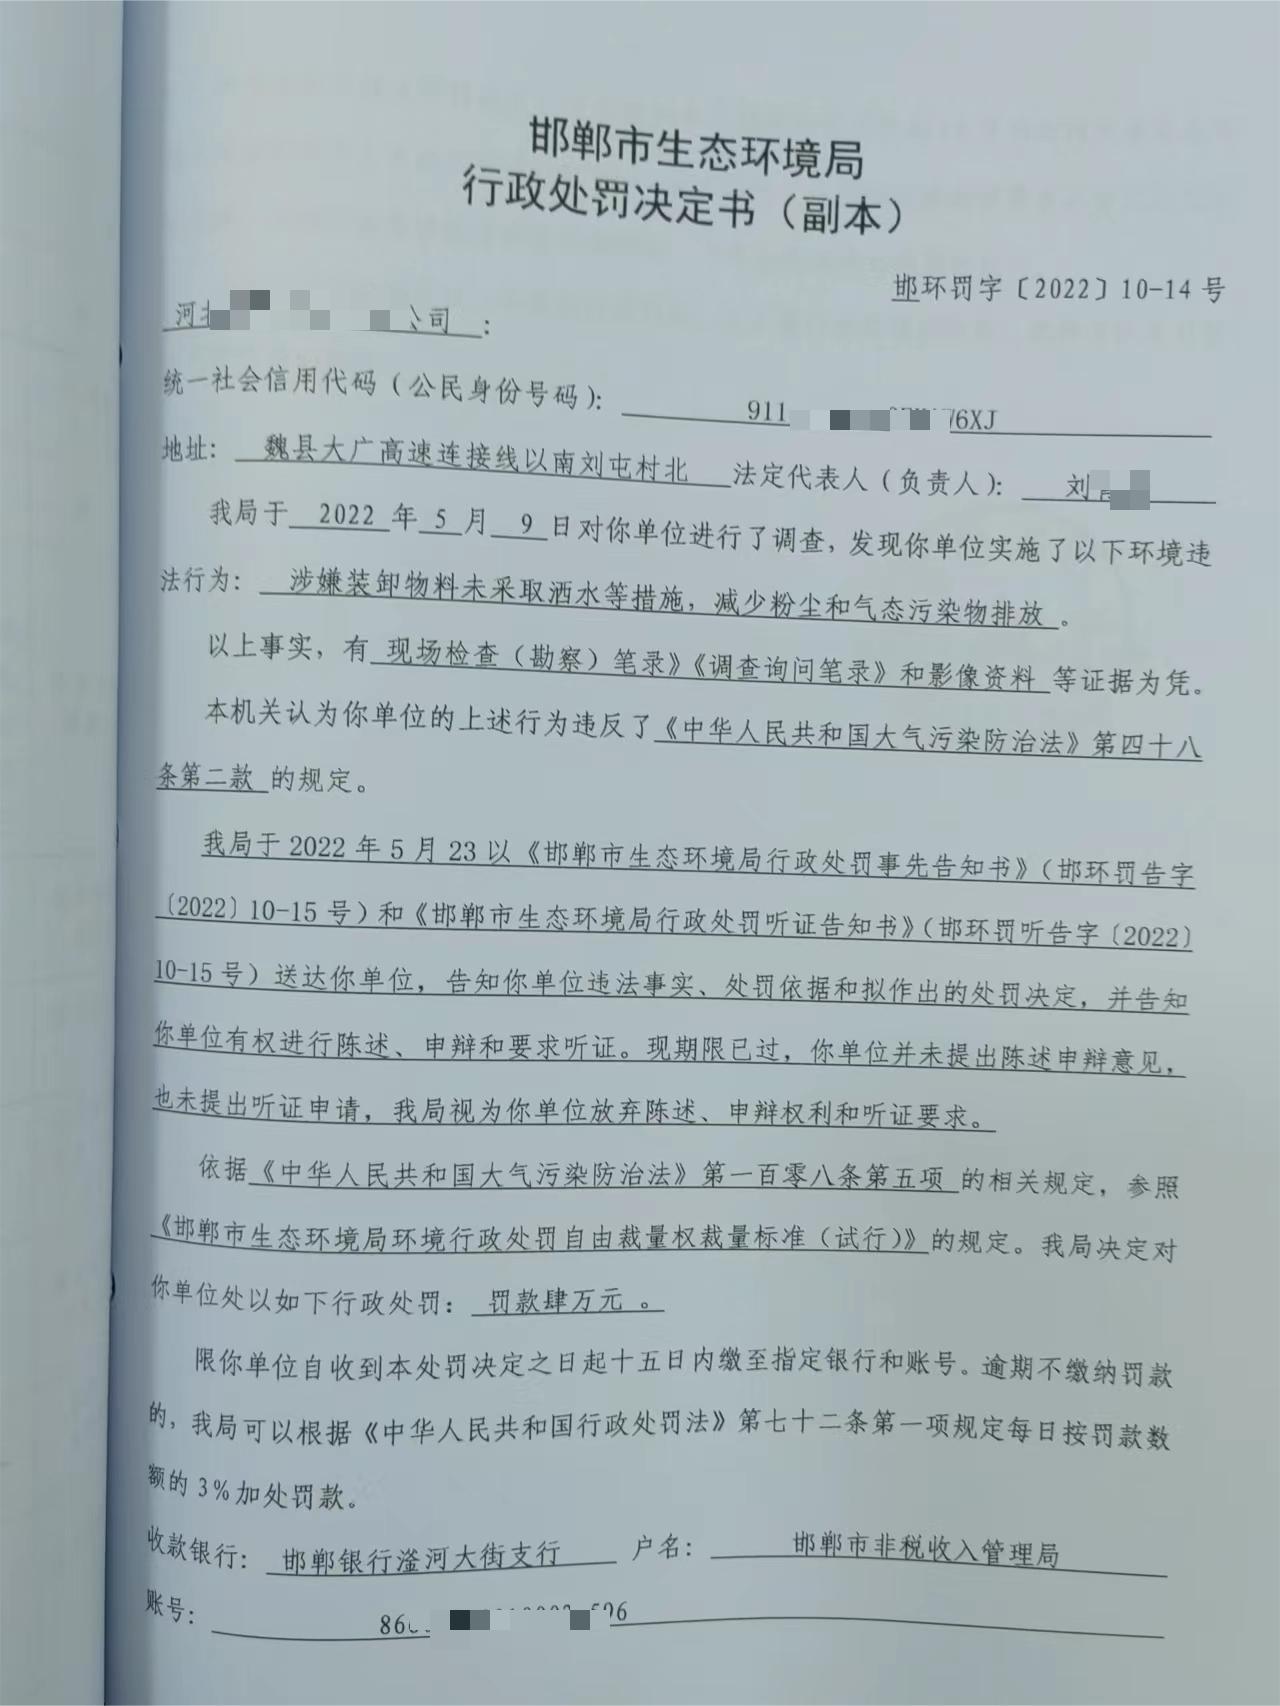 邯郸市生态环境局
行政处罚决定书（副本）
邯环罚字〔2022〕10-14 号
河 公司：
统一社会信用代码（公民身份号码）： 911 76XJ
地址： 魏县大广高速连接线以南刘屯村北 法定代表人（负责人）： 刘
我局于 2022 年 5 月 9 日对你单位进行了调查，发现你单位实施了以下环境违
法行为： 涉嫌装卸物料未采取洒水等措施，减少粉尘和气态污染物排放 。
以上事实，有 现场检查（勘察）笔录》《调查询问笔录》和影像资料 等证据为凭。
本机关认为你单位的上述行为违反了《中华人民共和国大气污染防治法》第四十八
条第二款 的规定。
我局于 2022 年 5 月 23 以《邯郸市生态环境局行政处罚事先告知书》（邯环罚告字
〔2022〕10-15 号）和《邯郸市生态环境局行政处罚听证告知书》（邯环罚听告字〔2022〕
10-15 号）送达你单位，告知你单位违法事实、处罚依据和拟作出的处罚决定，并告知
你单位有权进行陈述、申辩和要求听证。现期限已过，你单位并未提出陈述申辩意见，
也未提出听证申请，我局视为你单位放弃陈述、申辩权利和听证要求。
依据《中华人民共和国大气污染防治法》第一百零八条第五项 的相关规定，参照
《邯郸市生态环境局环境行政处罚自由裁量权裁量标准（试行）》的规定。我局决定对
你单位处以如下行政处罚： 罚款肆万元 。
限你单位自收到本处罚决定之日起十五日内缴至指定银行和账号。逾期不缴纳罚款
的，我局可以根据《中华人民共和国行政处罚法》第七十二条第一项规定每日按罚款数
额的 3%加处罚款。
收款银行： 邯郸银行滏河大街支行 户名： 邯郸市非税收入管理局
账号： 86